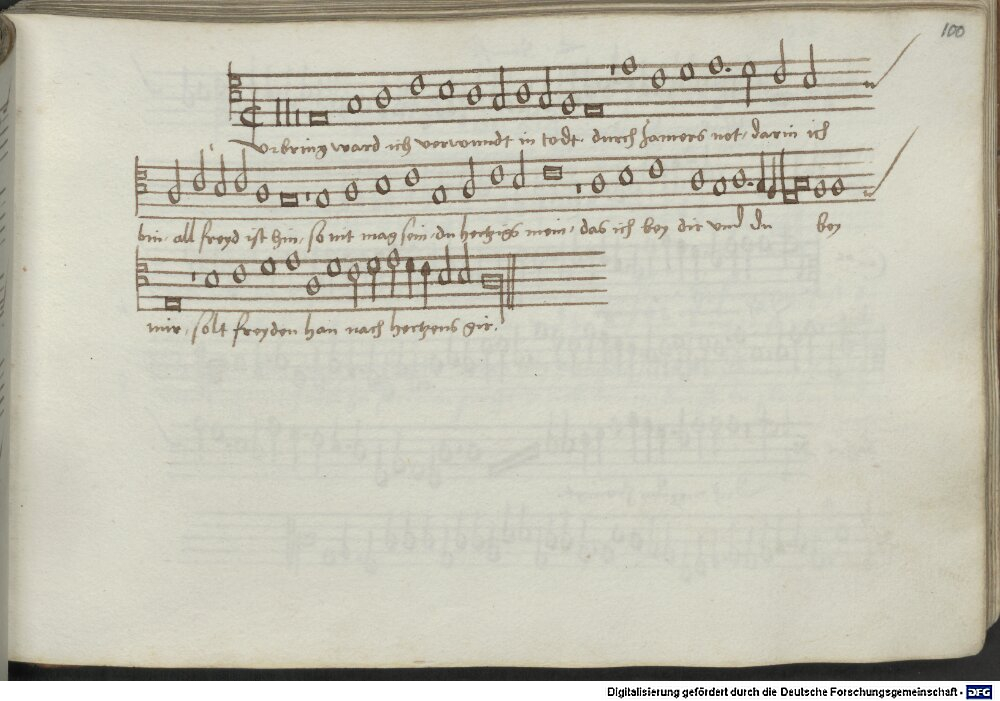 100
Urbring ward ich verwundt in todt. durch Jamers not. darin ich
bin. all freyd ist hin. so nit mag sein. du hertzigs mein. das ich bey dir und du bey
mir. solt freyden han nach hertzens gir.
Digitalisierung gefördert durch die Deutsche Forschungsgemeinschaft - DFG